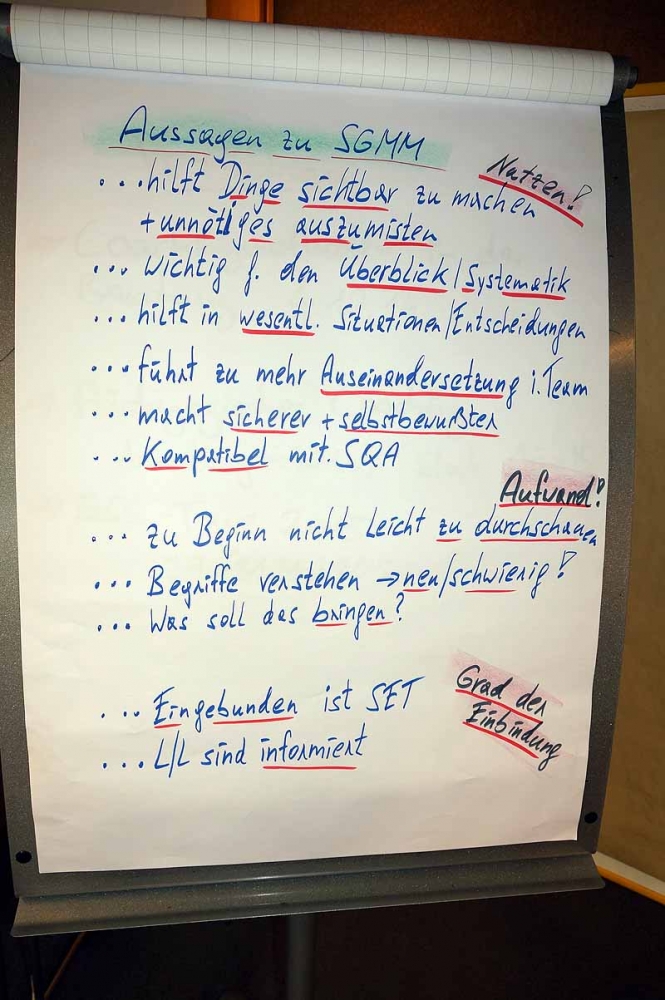 Aussagen zu SGMM
Nutzen!
...hilft Dinge sichtbar zu machen
+ unnötiges auszumisten
... wichtig f. den Überblick/Systematik
... hilft in wesentl. Situationen/Entscheidungen
... führt zu mehr Auseinandersetzung i. Team
... macht sicherer + selbstbewußter
... Kompatibel mit. SQA
Aufwand!
... zu Beginn nicht leicht zu durchschauen
... Begriffe verstehen → neu/schwierig!
... Was soll das bringen?
Grad der
Einbindung
... Eingebunden ist SET
... L/L sind informiert